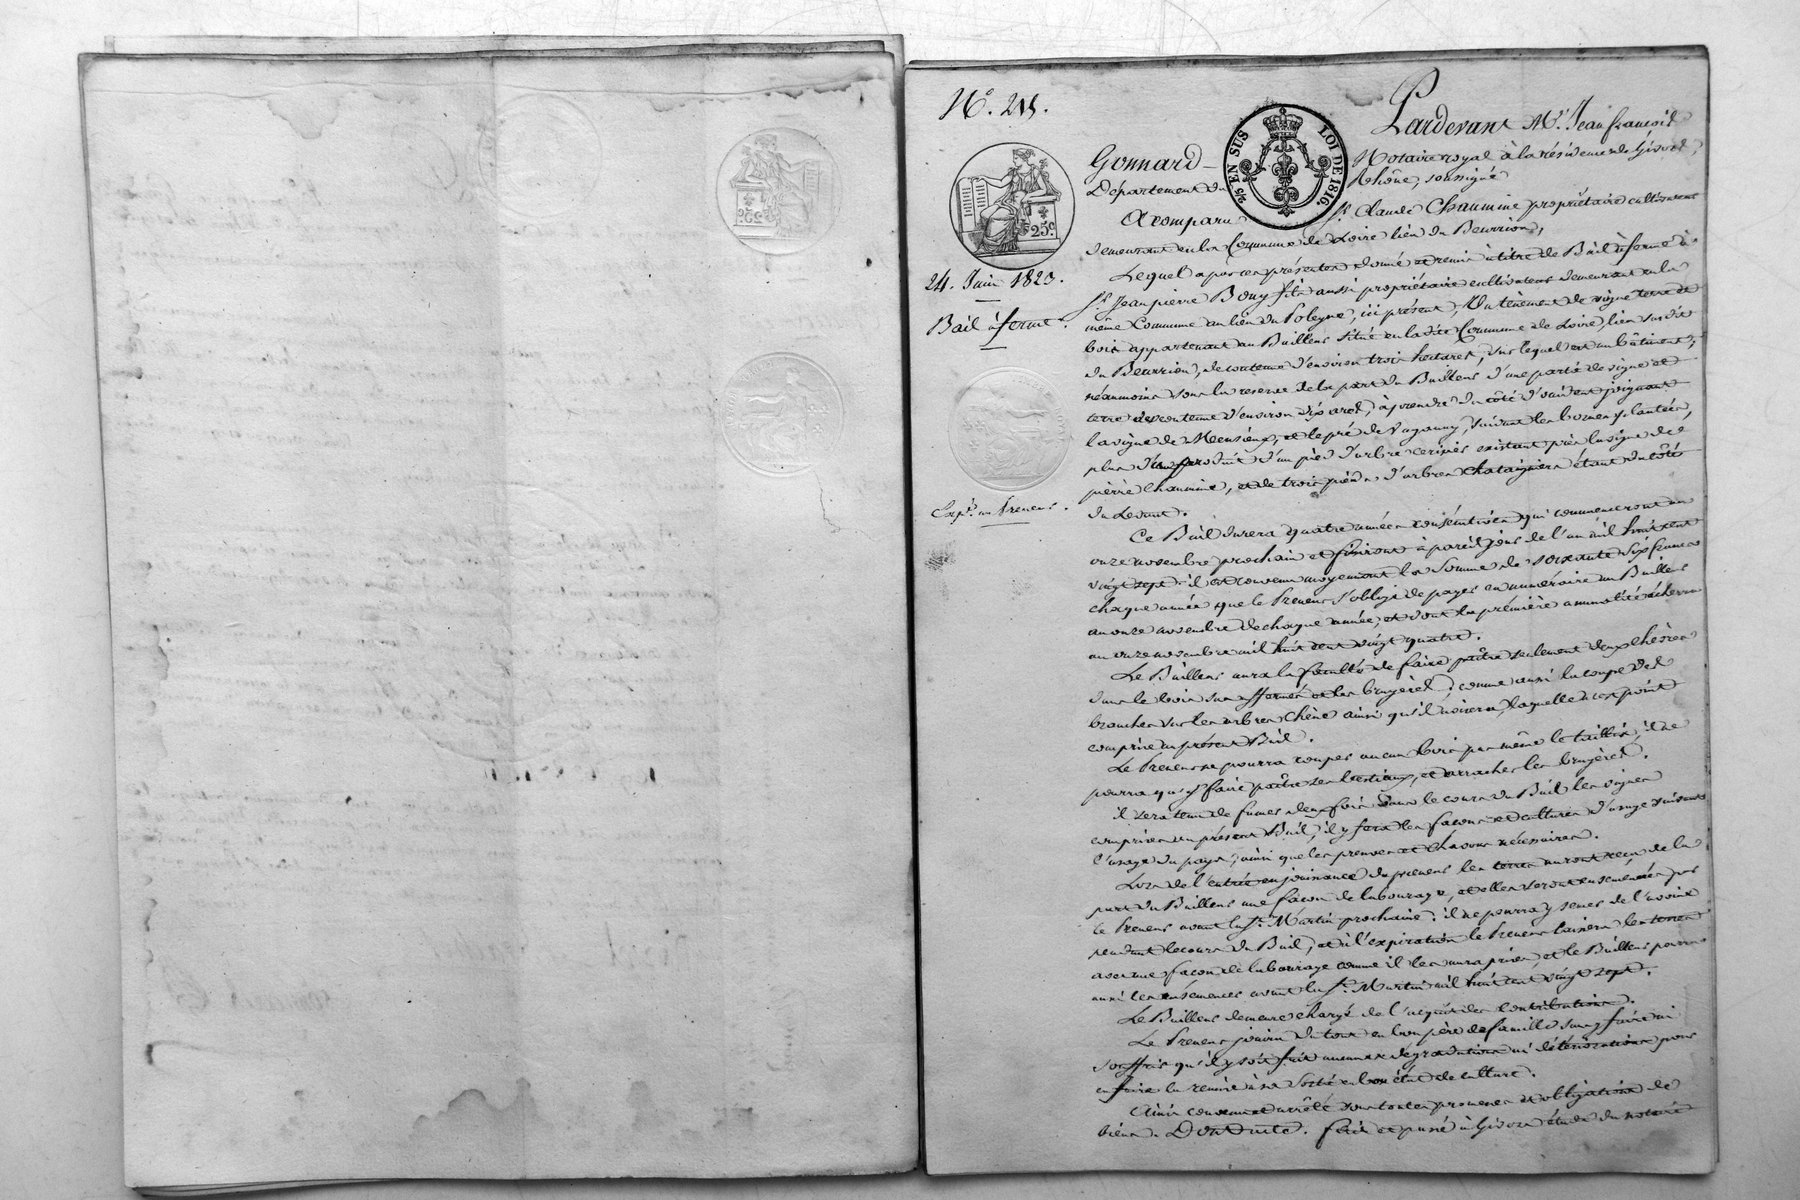 N.° 215.
Pardevant M.e Jean françois
Gonnard Notaire royal à la résidence de Givors,
Département du Rhône, soussigné
A comparu S.r Claude Chaumine propriétaire cultivateur
demeurant en la Commune de Loire lieu du Beurrion,
2/5 EN SUS LOI DE 1816.
25c.
24. Juin 1823.
Bail à ferme.
Exp.on au Preneur.
Lequel a par ces présentes donné et remis à titre de Bail à ferme à
S.r Jean pierre Bony fils aussi propriétaire cultivateur demeurant en la
même Commune au lieu du Poleyne, ici présent, Un tènement de vigne terre et
bois appartenant au Bailleur situé en la dite Commune de Loire, lieu susdit
du Beurrion, de contenue d'environ trois hectares, sur lequel est un bâtiment,
néanmoins sous la réserve de la part du Bailleur d'une partie de vigne et
terre de contenue d'environ dix ares, à prendre du côté d'orient joignant
la vigne de et le pré de suivant les bornes plantées,
plus d'un pied d'arbre cerisier existant près la vigne de
pierre Chaumine, et de trois pieds d'arbres chataigniers étant du côté
du Levant.
Ce Bail durera quatre années consécutives qui commenceront au
onze novembre prochain et finiront à pareil jour de l'an mil huit cent
vingt sept: il est convenu moyennant la Somme de soixante dix francs
chaque année que le Preneur s'oblige de payer en numéraire au Bailleur
au onze novembre de chaque année, et dont la première annuité écherra
au onze novembre mil huit cent vingt quatre.
Le Bailleur aura la faculté de faire paître seulement deux chèvres
dans le bois sus affermé et les bruyères; comme aussi la coupe des
branches sur les arbres Chêne ainsi qu'il avisera, laquelle n'est point
comprise au présent Bail.
Le Preneur ne pourra couper aucun bois pas même le taillis, il ne
pourra qu'y faire paître ses bestiaux, et arracher les bruyères.
il sera tenu de fumer deux fois dans le cours du Bail les vignes
comprises au présent Bail, il y fera les façons et cultures d'usage suivant
l'usage du pays, ainsi que les preuves et chavons nécessaires.
Lors de l'entrée en jouissance du preneur les terres auront reçu de la
part du Bailleur une façon de labourage, et elles seront ensemencées par
le Preneur avant la S.t Martin prochaine: il ne pourra y semer de l'avoine
pendant le cours du Bail, et à l'expiration le Preneur laissera les terres
avec une façon de labourage comme il les aura prises, et le Bailleur pourra
aussi les ensemencer avant la S.t Martin mil huit cent vingt sept.
Le Bailleur demeure chargé de l'acquit des contributions.
Le Preneur jouira du tout en bon père de famille sans y faire ni
souffrir qu'il y soit fait aucunes dégradations ni détériorations pour
en faire la remise à sa Sortie en bon état de culture.
Ainsi convenu et arrêté sous toutes promesses et obligations de
biens. Dont Acte. fait et passé à Givors étude du notaire